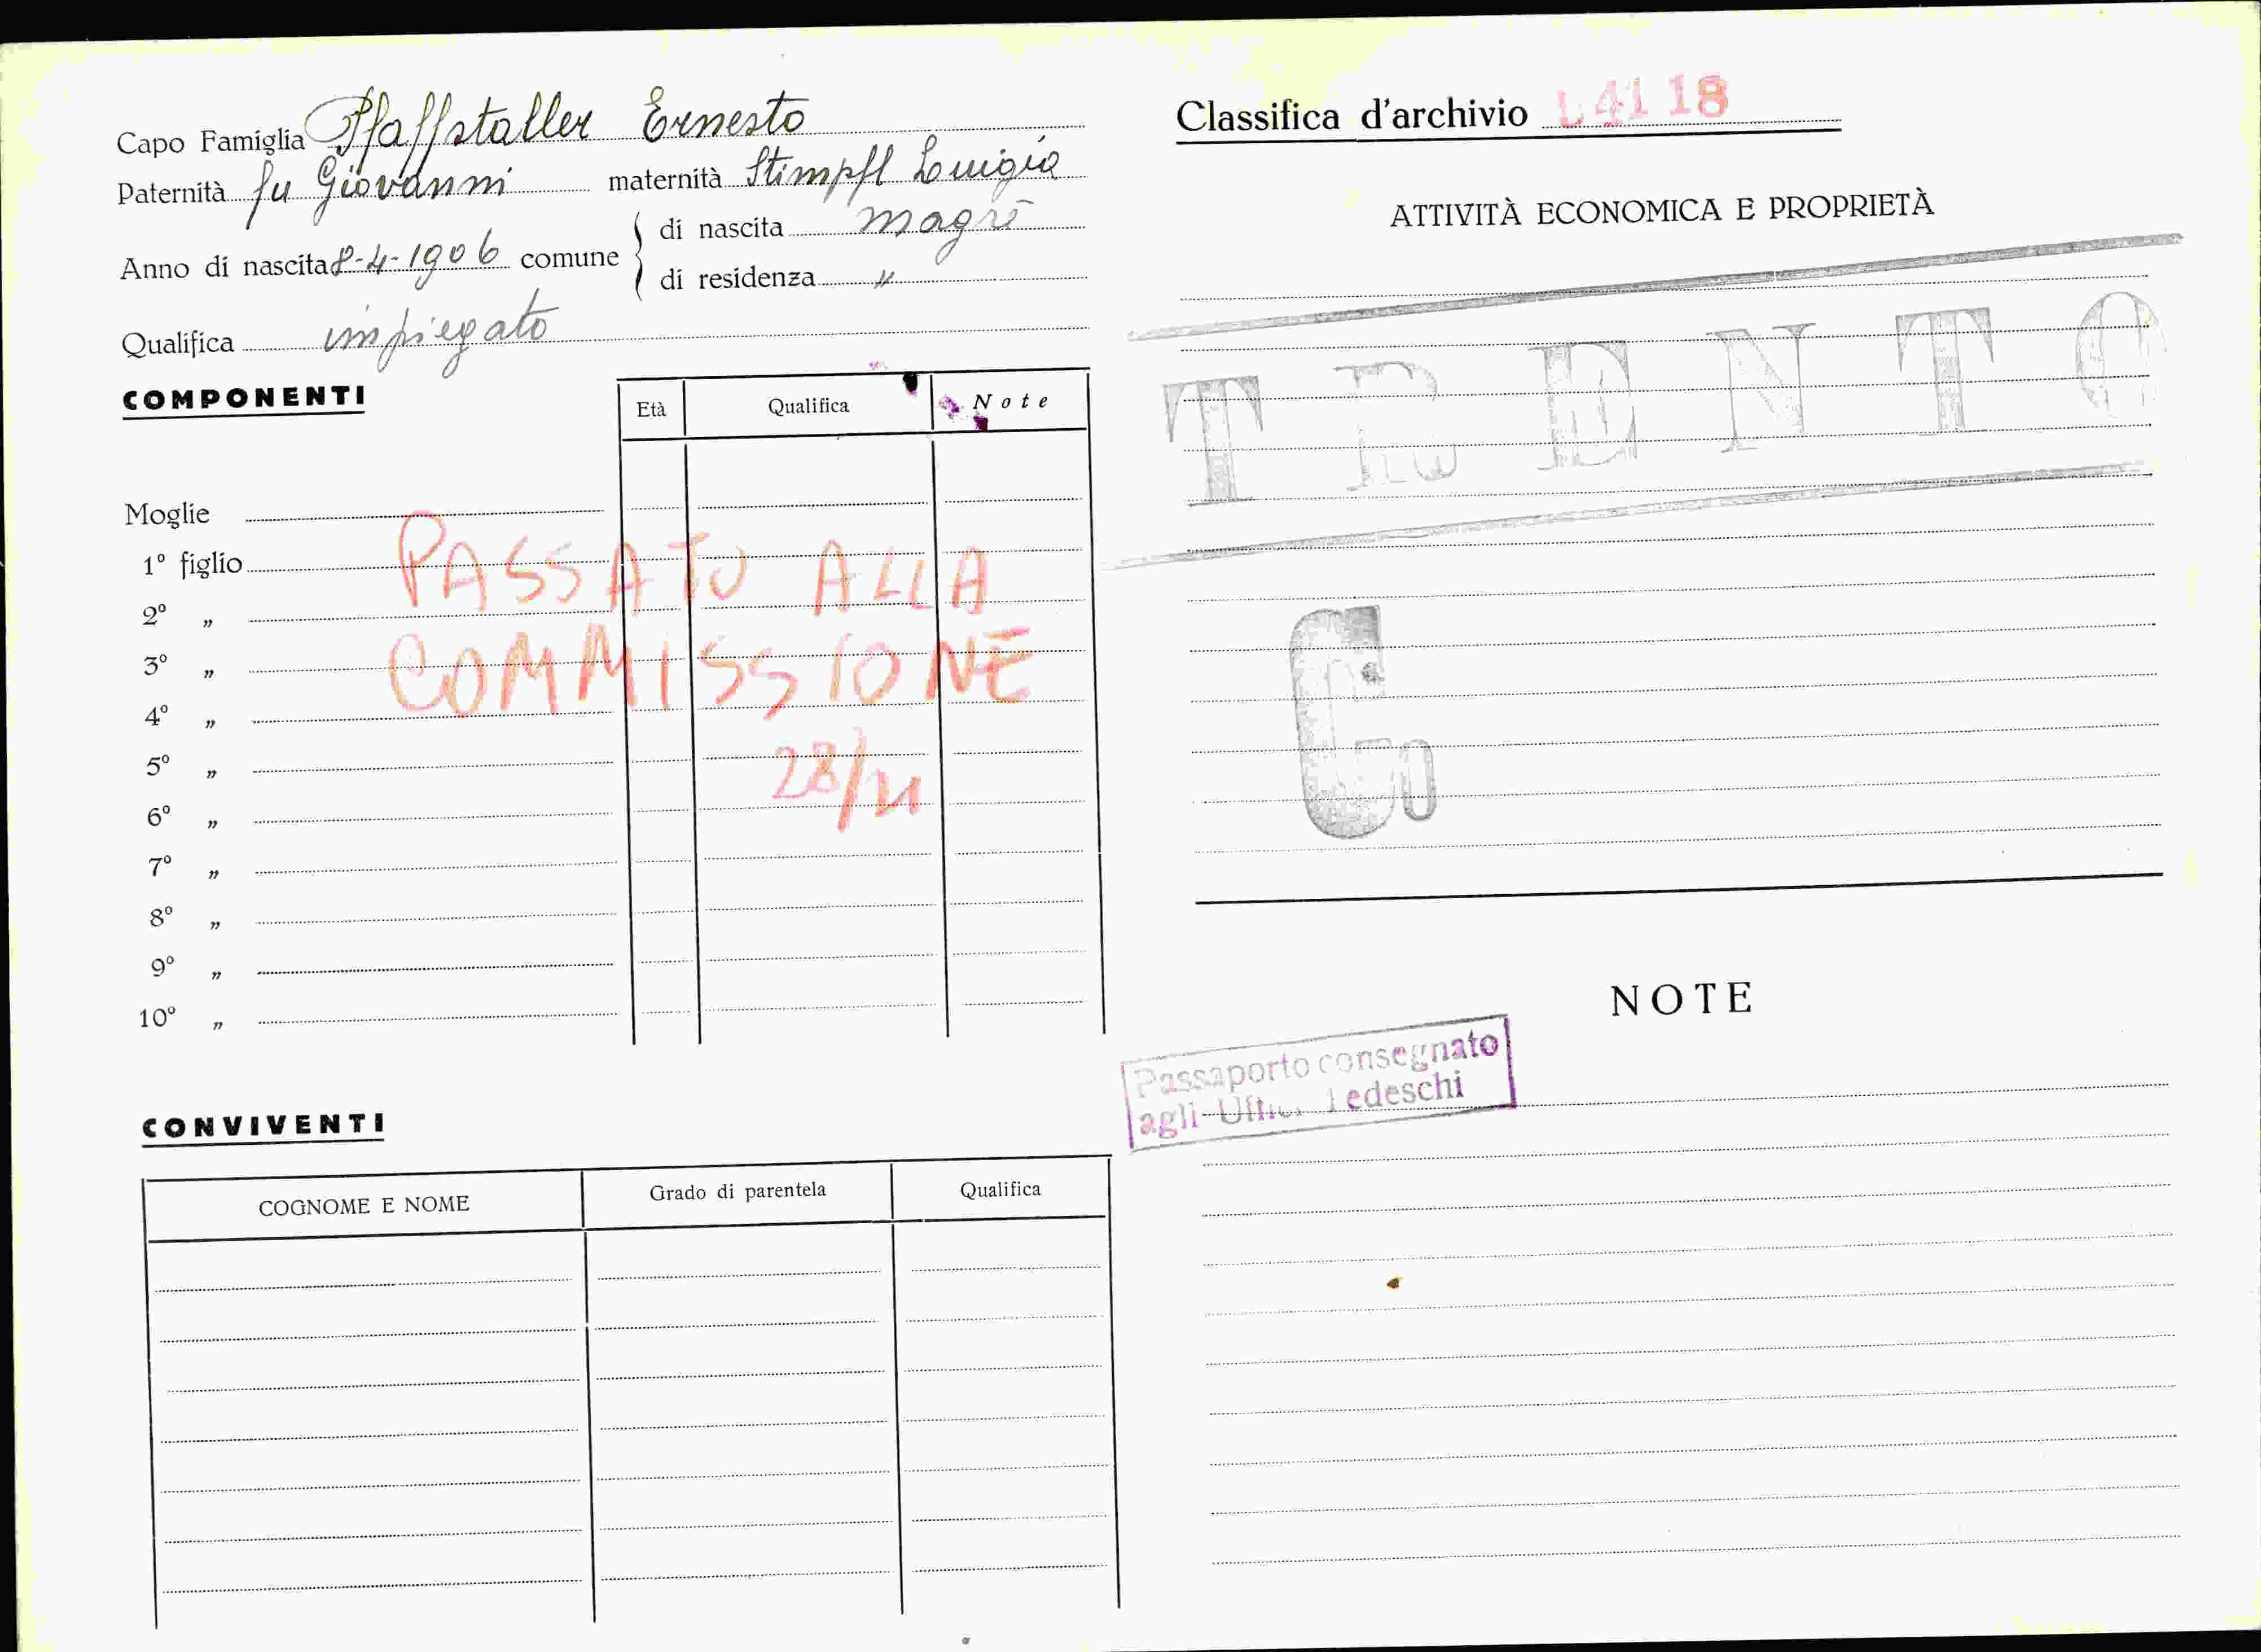 Capo Famiglia Pfaffstaller Ernesto
Paternità fu Giovanni maternità Stimpfl Luigia
Anno di nascita 8-4-1906 comune di nascita magrè
di residenza "
Qualifica impiegato
COMPONENTI
Età Qualifica Note
Moglie
1º figlio
2º "
3º "
4º "
5º "
6º "
7º "
8º "
9º "
10º "
PASSATO ALLA
COMMISSIONE
28/11
CONVIVENTI
COGNOME E NOME Grado di parentela Qualifica
Classifica d'archivio L 41 18
ATTIVITÀ ECONOMICA E PROPRIETÀ
TRENTO
NOTE
Passaporto consegnato
agli Uffici Tedeschi